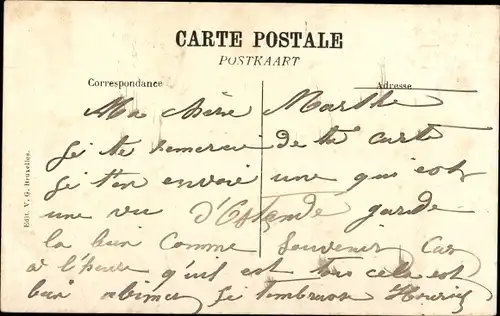 CARTE POSTALE
POSTKAART
Correspondance
Adresse
Edit. V. G. Bruxelles.
Ma chère Marthe
je te remercie de ta carte
je t'en envoie une qui est
une vu d'Ostende garde
la bien comme souvenir car
a l'heure qu'il est tous cela est
bien abimer je t'embrasse